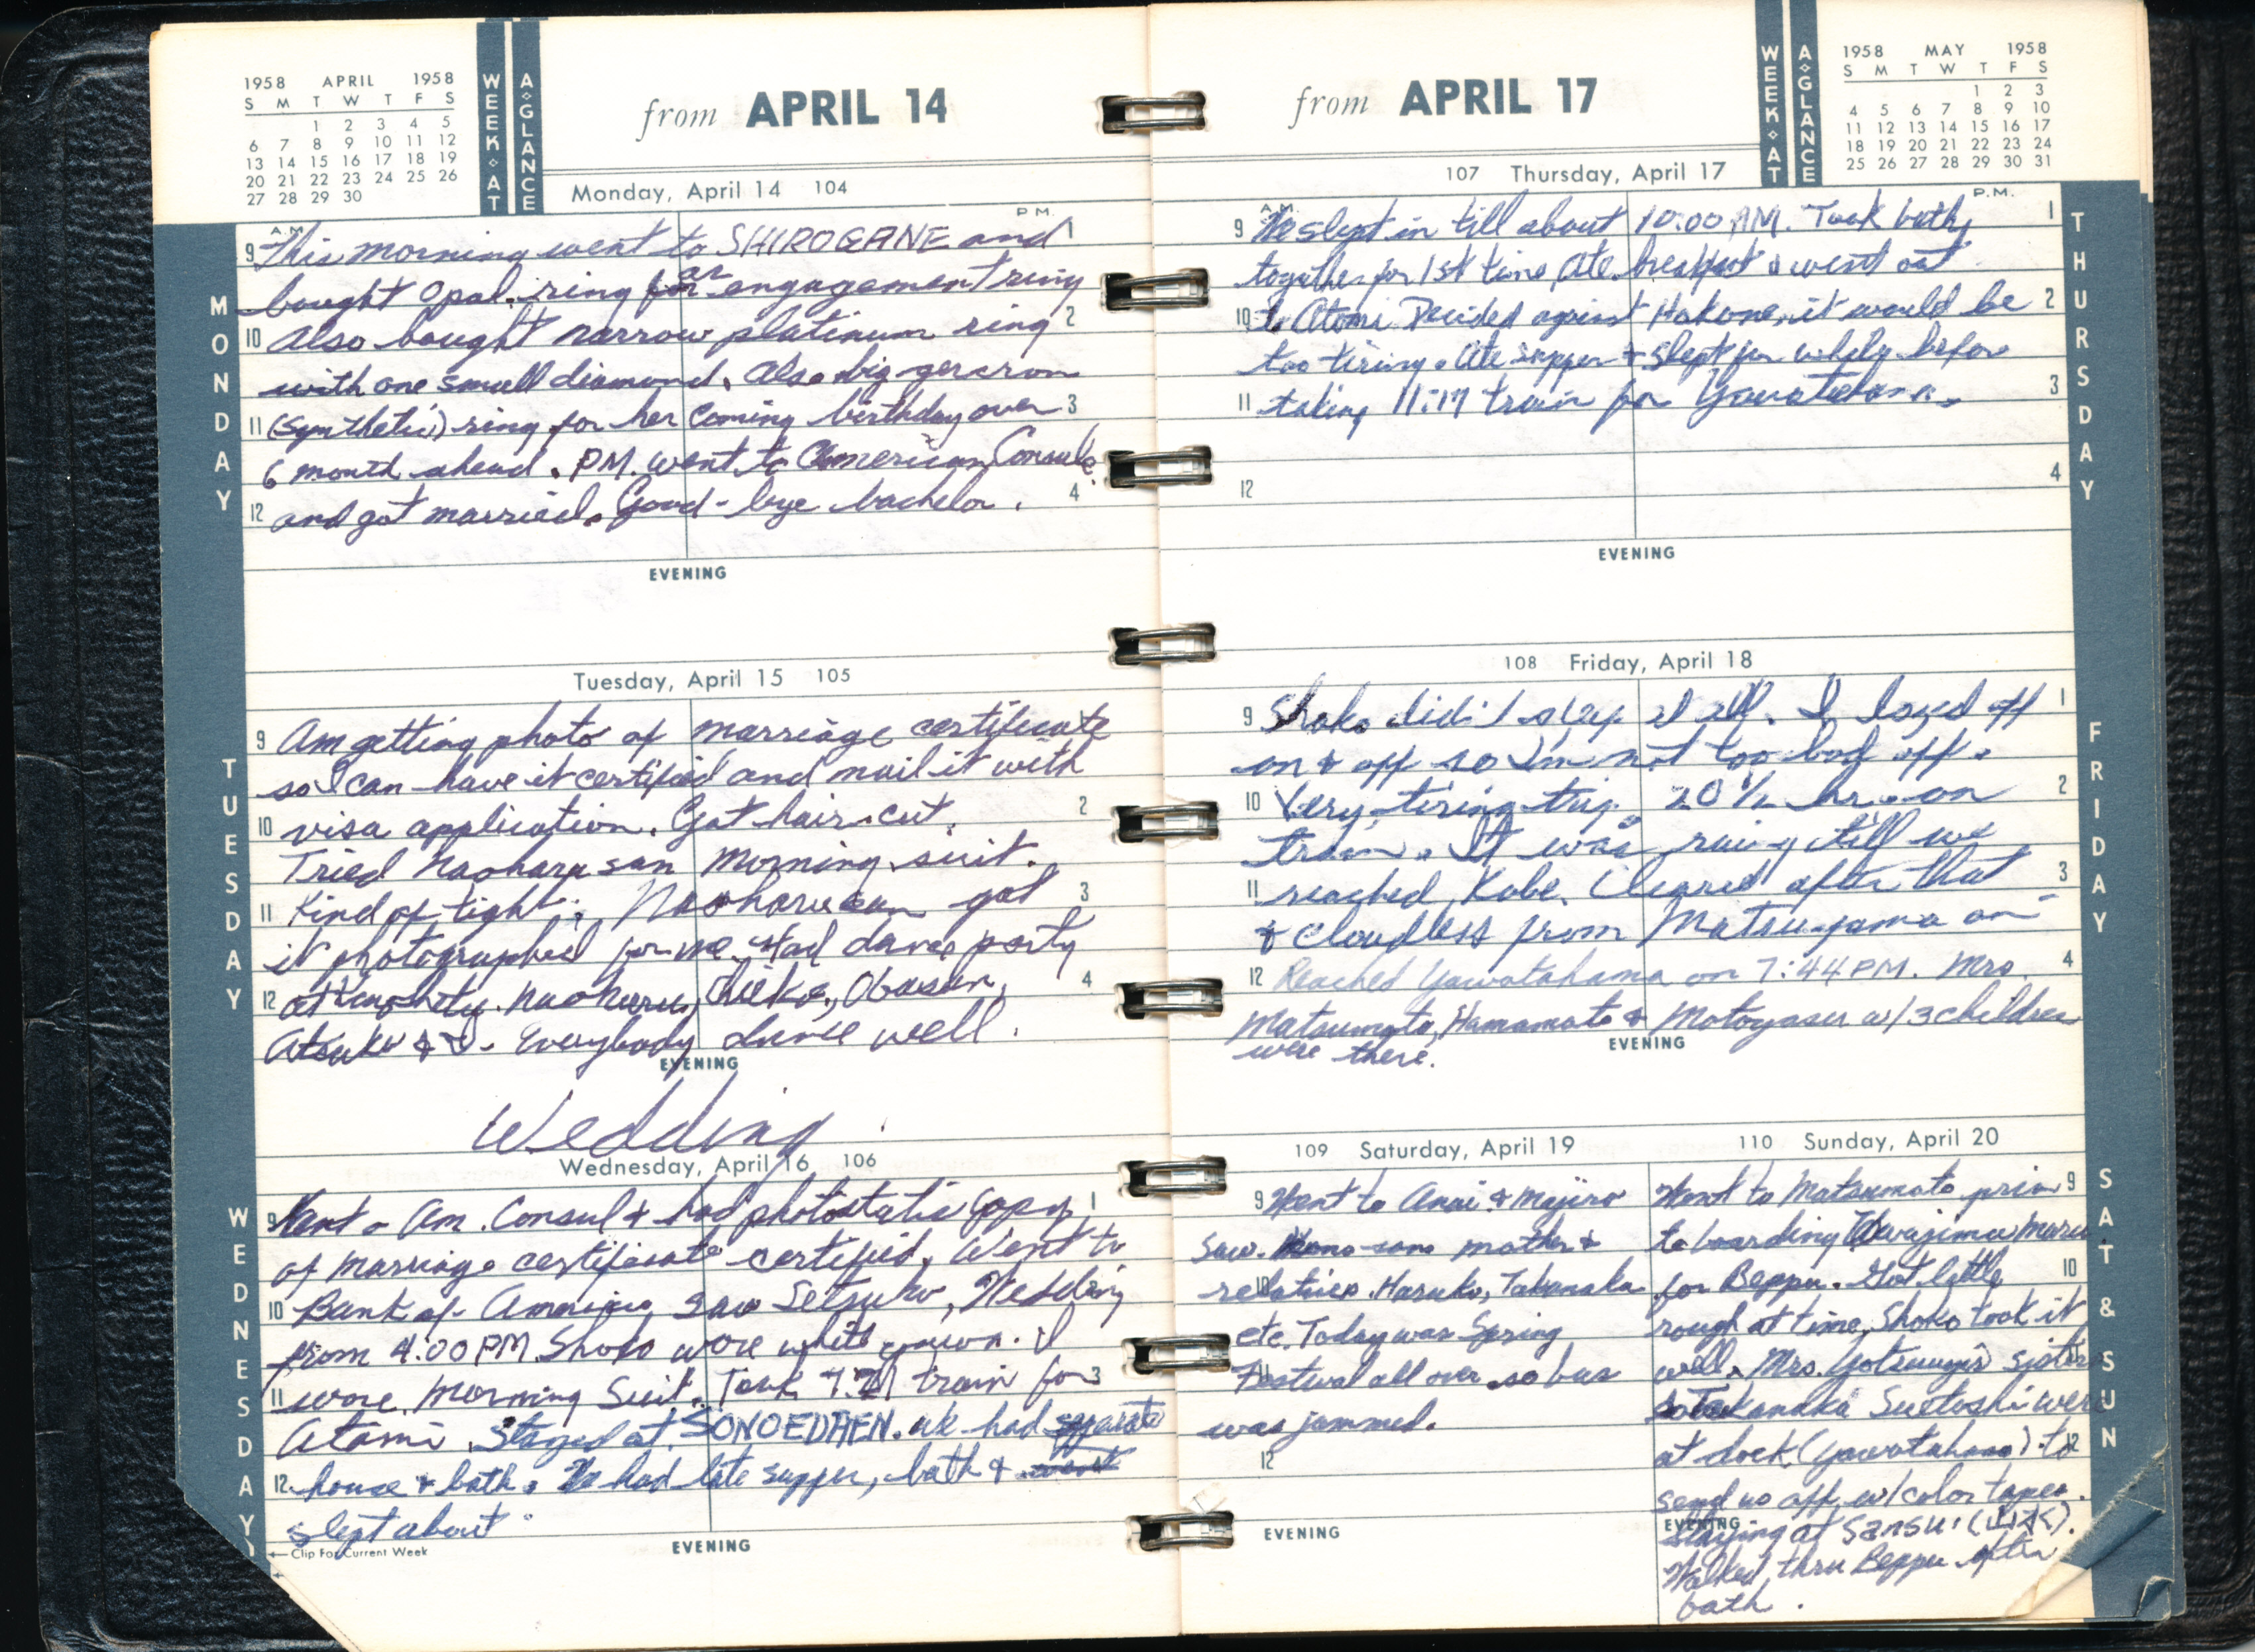 1958 APRIL 1958
S M T W T F S
1 2 3 4 5
6 7 8 9 10 11 12
13 14 15 16 17 18 19
20 21 22 23 24 25 26
27 28 29 30
WEEK·AT
A·GLANCE
from APRIL 14
Monday, April 14 104
A.M. P.M.
MONDAY
9 This morning went to SHIROGANE and 1
bought Opal ring for an engagement ring
10 Also bought narrow platinum ring 2
with one small diamond. Also big
11 (Synthetic) ring for her coming birthday over 3
6 month ahead. PM. went to American Consule
12 and got married. Good-bye bachelor. 4
EVENING
Tuesday, April 15 105
TUESDAY
9 Am getting photo of marriage certificate
so I can have it certified and mail it with
10 visa application. Got hair cut. 2
Tried Naoharu san morning suit.
11 Kind of tight. Naoharu san got 3
it photographed for me. Had dance party
12 at Naoharu, Chieko, Obasan, 4
Atsuko & I. Everybody dance well.
EVENING
Wedding
Wednesday, April 16 106
WEDNESDAY
9 Went to Am. Consul & had photostatic copy 1
of marriage certificate certified. Went to
10 Bank of America, saw Setsuko, Wedding
from 4:00 PM. Shoko wore white gown. I
11 wore Morning Suit. Took train for 3
Atami. Stayed at SONOEDHEN. We had separate
12 house & bath. We had late supper, bath &
slept about
Clip For Current Week
EVENING
from APRIL 17
WEEK·AT
A·GLANCE
1958 MAY 1958
S M T W T F S
1 2 3
4 5 6 7 8 9 10
11 12 13 14 15 16 17
18 19 20 21 22 23 24
25 26 27 28 29 30 31
107 Thursday, April 17
A.M. P.M.
THURSDAY
9 We slept in till about 10:00 AM. Took bath 1
together for 1st time. Ate breakfast & went out
10 to Atami. Decided against Hakone, it would be 2
too tiring. Ate supper & slept for while before
11 taking 11:17 train for Yawatahama. 3
12 4
EVENING
108 Friday, April 18
FRIDAY
9 Shoko didn't sleep at all. I dozed off 1
on & off so I'm not too bad off.
10 Very tiring trip. 20 1/2 hr. on 2
train. It was raining till we
11 reached Kobe. Cleared after that 3
& cloudless from Matsuyama on
12 Reached Yawatahama on 7:44 PM. Mrs. 4
Matsumoto, Hamamoto & Motoyasu w/3 children
were there.
EVENING
109 Saturday, April 19
9 Went to Anai & Majiro
saw mother &
relatives. Haruko, Takanaka
etc. Today was Spring
11 Festival all over so bus
was jammed.
12
EVENING
110 Sunday, April 20
SAT & SUN
Went to Matsumoto prior 9
to boarding Maru
for Beppu. Got little 10
rough at time. Shoko took it
well. Mrs. Yotsuugi's sister
Takanaka Suetoshi were
at dock (Yawatahama) to 12
send us off w/color tapes.
EVENING
Staying at Sansui (山水).
Walked thru Beppu after
bath.